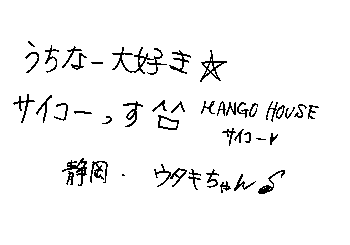 うちなー大好き☆
サイコーっす^^ MANGO HOUSE
サイコー♥
静岡. ウタキちゃん♪